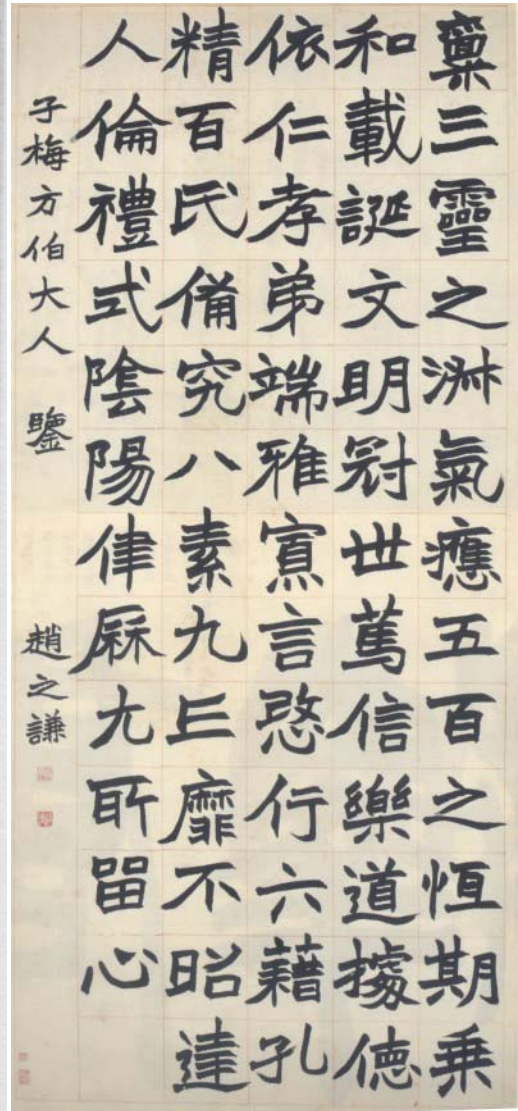 稟三靈之淑氣應五百之恆期乗
和載誕文明冠世篤信樂道據徳
依仁孝弟端雅寡言愍行六藉孔
精百氏備究八素九丘靡不昭達
人倫禮式陰陽律厤尤所留心
子梅方伯大人 鑒
趙之謙